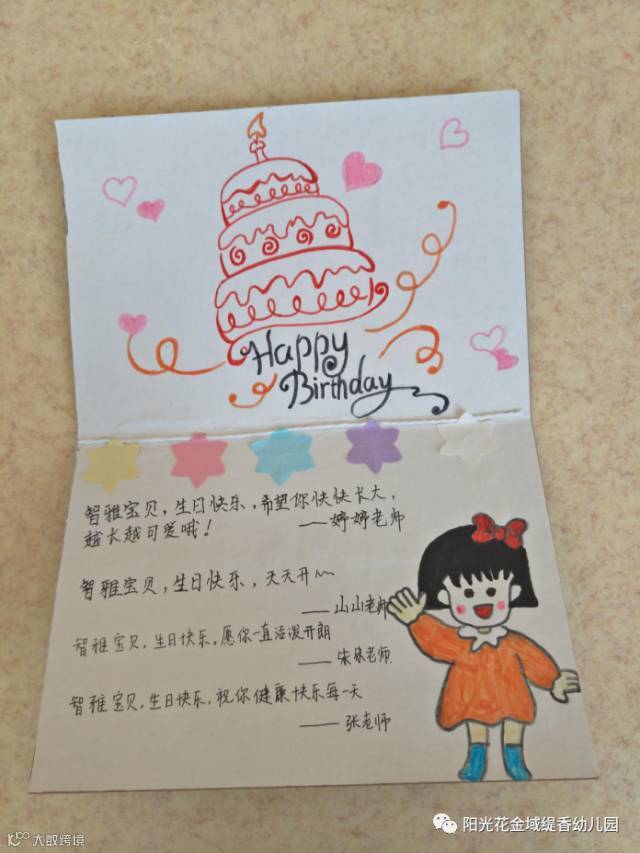 Happy
Birthday
智雅宝贝，生日快乐，希望你快快长大，
越长越可爱哦！
——婷婷老师
智雅宝贝，生日快乐，天天开
——山山老师
智雅宝贝，生日快乐，愿你一直活泼开朗
——朱老师
智雅宝贝，生日快乐，祝你健康快乐每一天
——张老师
大数跨境
阳光花金域缇香幼儿园